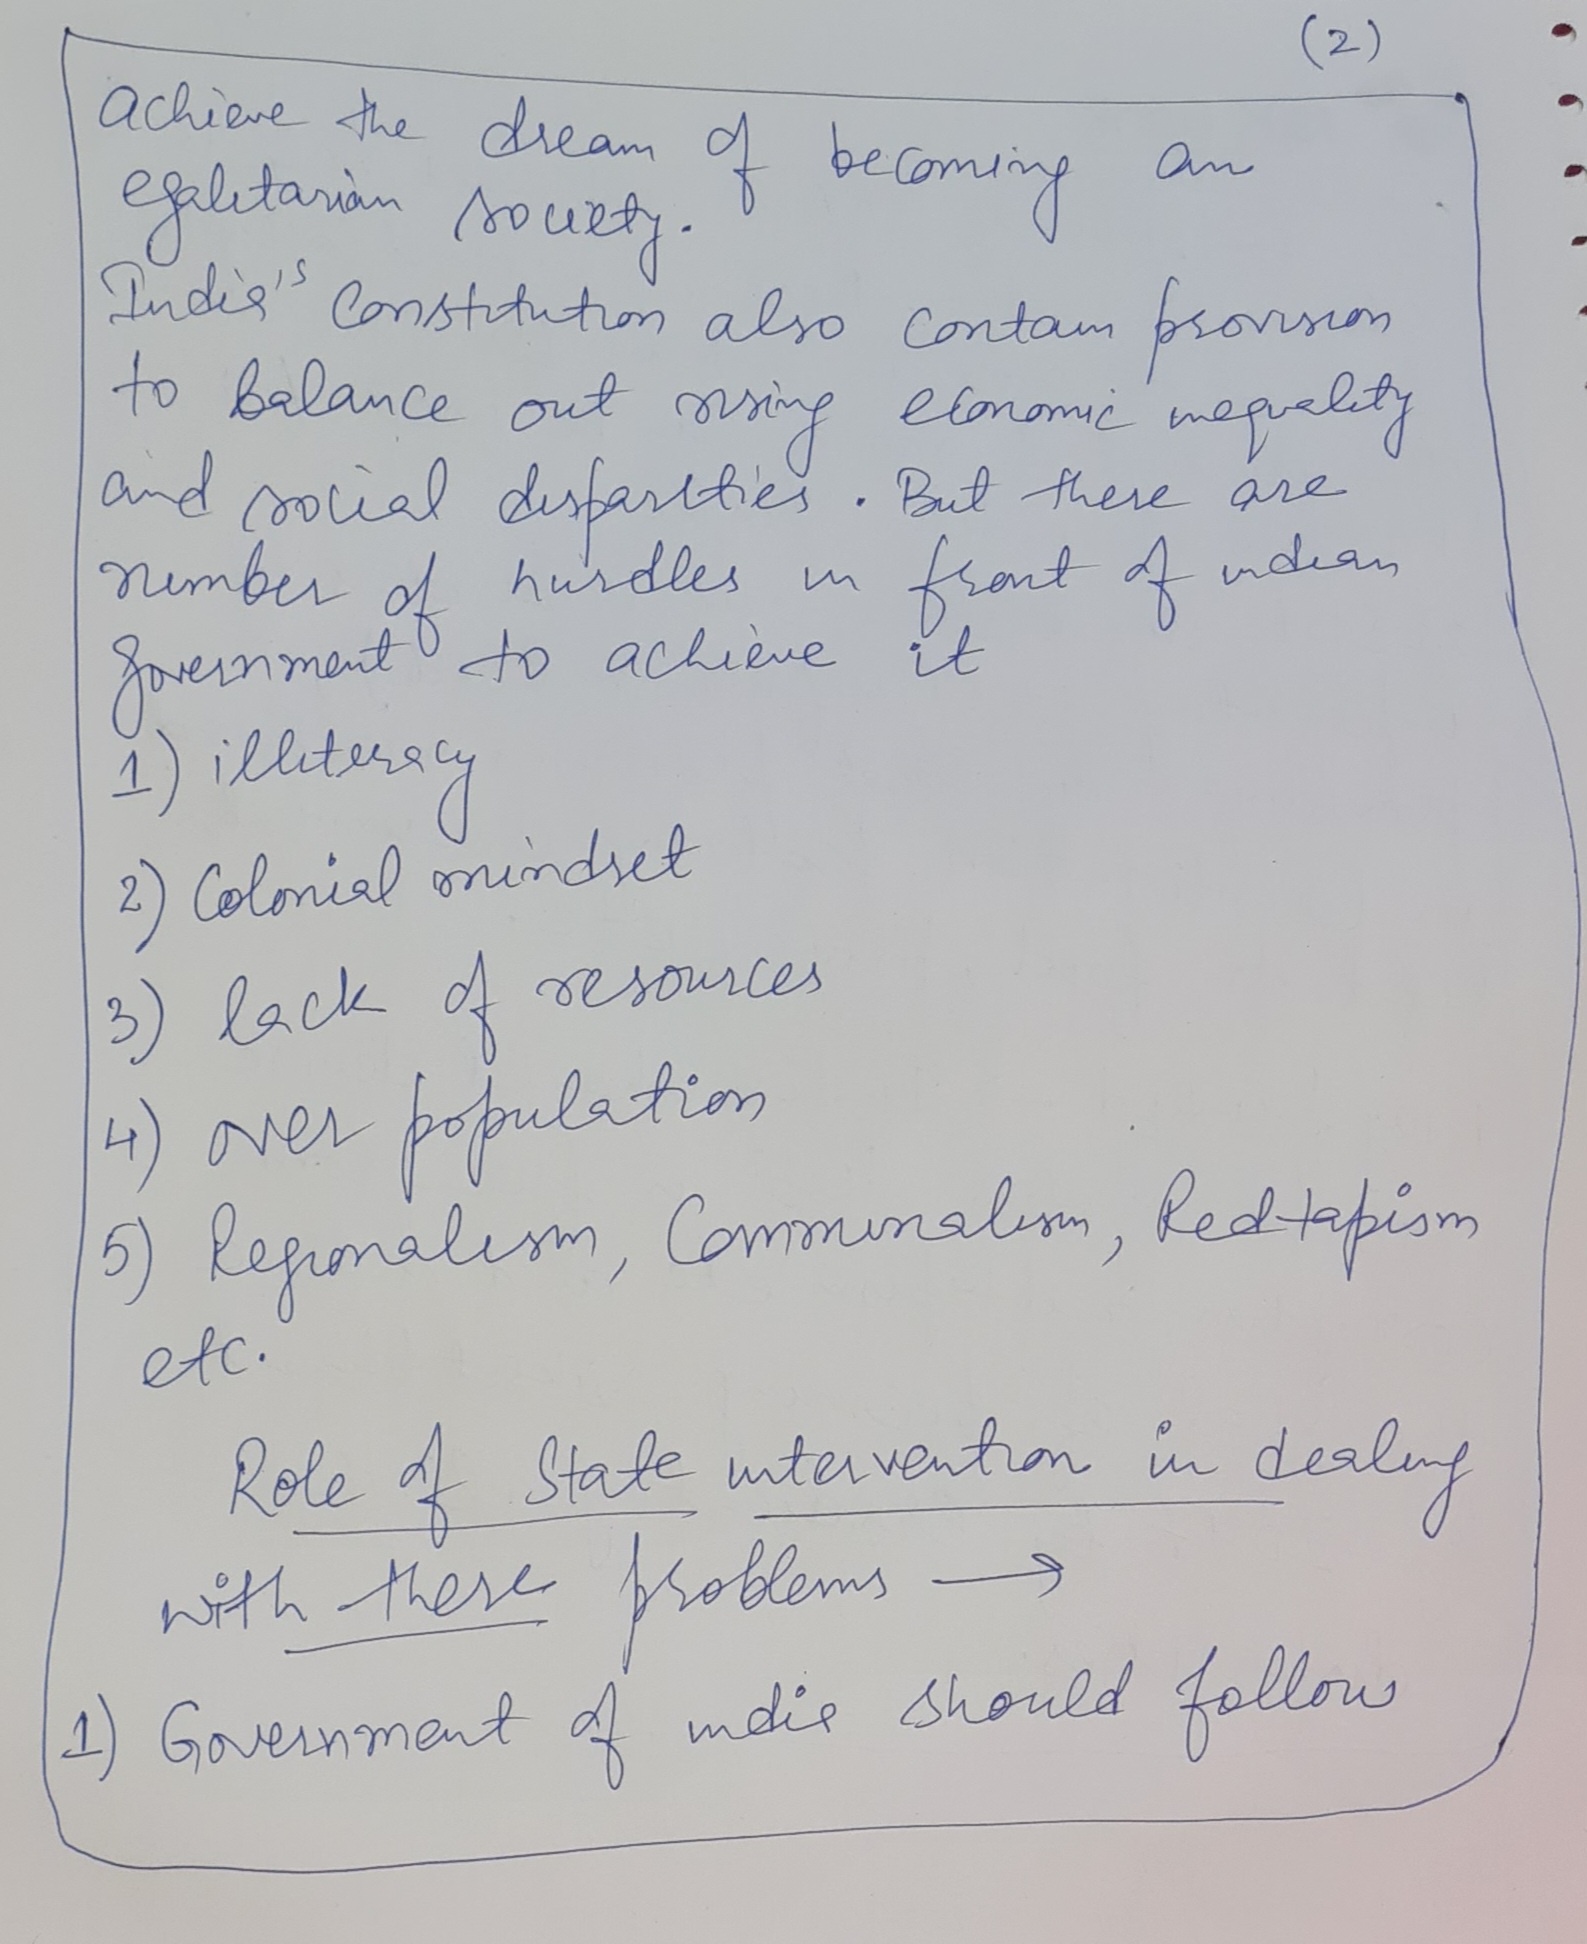 (2)
achieve the dream of becoming an
egalitarian society.
India's Constitution also contain provision
to balance out rising economic inequality
and social disparities. But there are
number of hurdles in front of indian
government to achieve it
1) illiteracy
2) Colonial mindset
3) lack of resources
4) over population
5) Regionalism, Communalism, Red-tapism
etc.
Role of State intervention in dealing
with these problems →
1) Government of india should follow